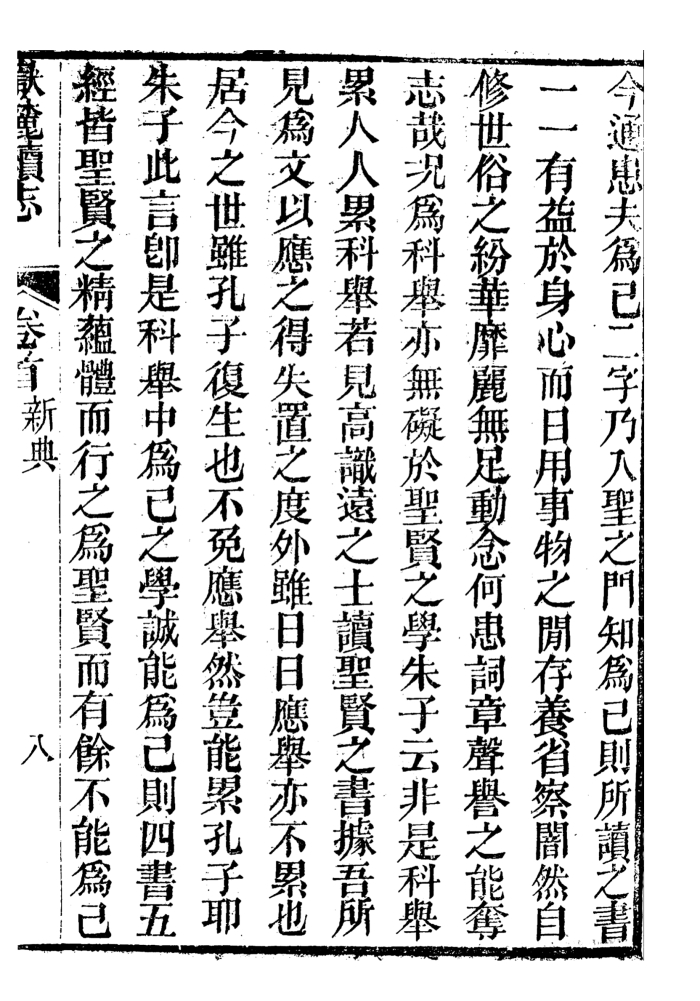 今通患夫爲己二字乃入聖之門知爲己則所讀之書
一一有益於身心而日用事物之閒存養省察闇然自
修世俗之紛華靡麗無足動念何患詞章聲譽之能奪
志哉况爲科舉亦無礙於聖賢之學朱子云非是科舉
累人人累科舉若見高識遠之士讀聖賢之書據吾所
見爲文以應之得失置之度外雖日日應舉亦不累也
居今之世雖孔子復生也不免應舉然豈能累孔子耶
朱子此言卽是科舉中爲己之學誠能爲己則四書五
經皆聖賢之精蘊體而行之爲聖賢而有餘不能爲己
嶽麓續志 卷首 新典 八